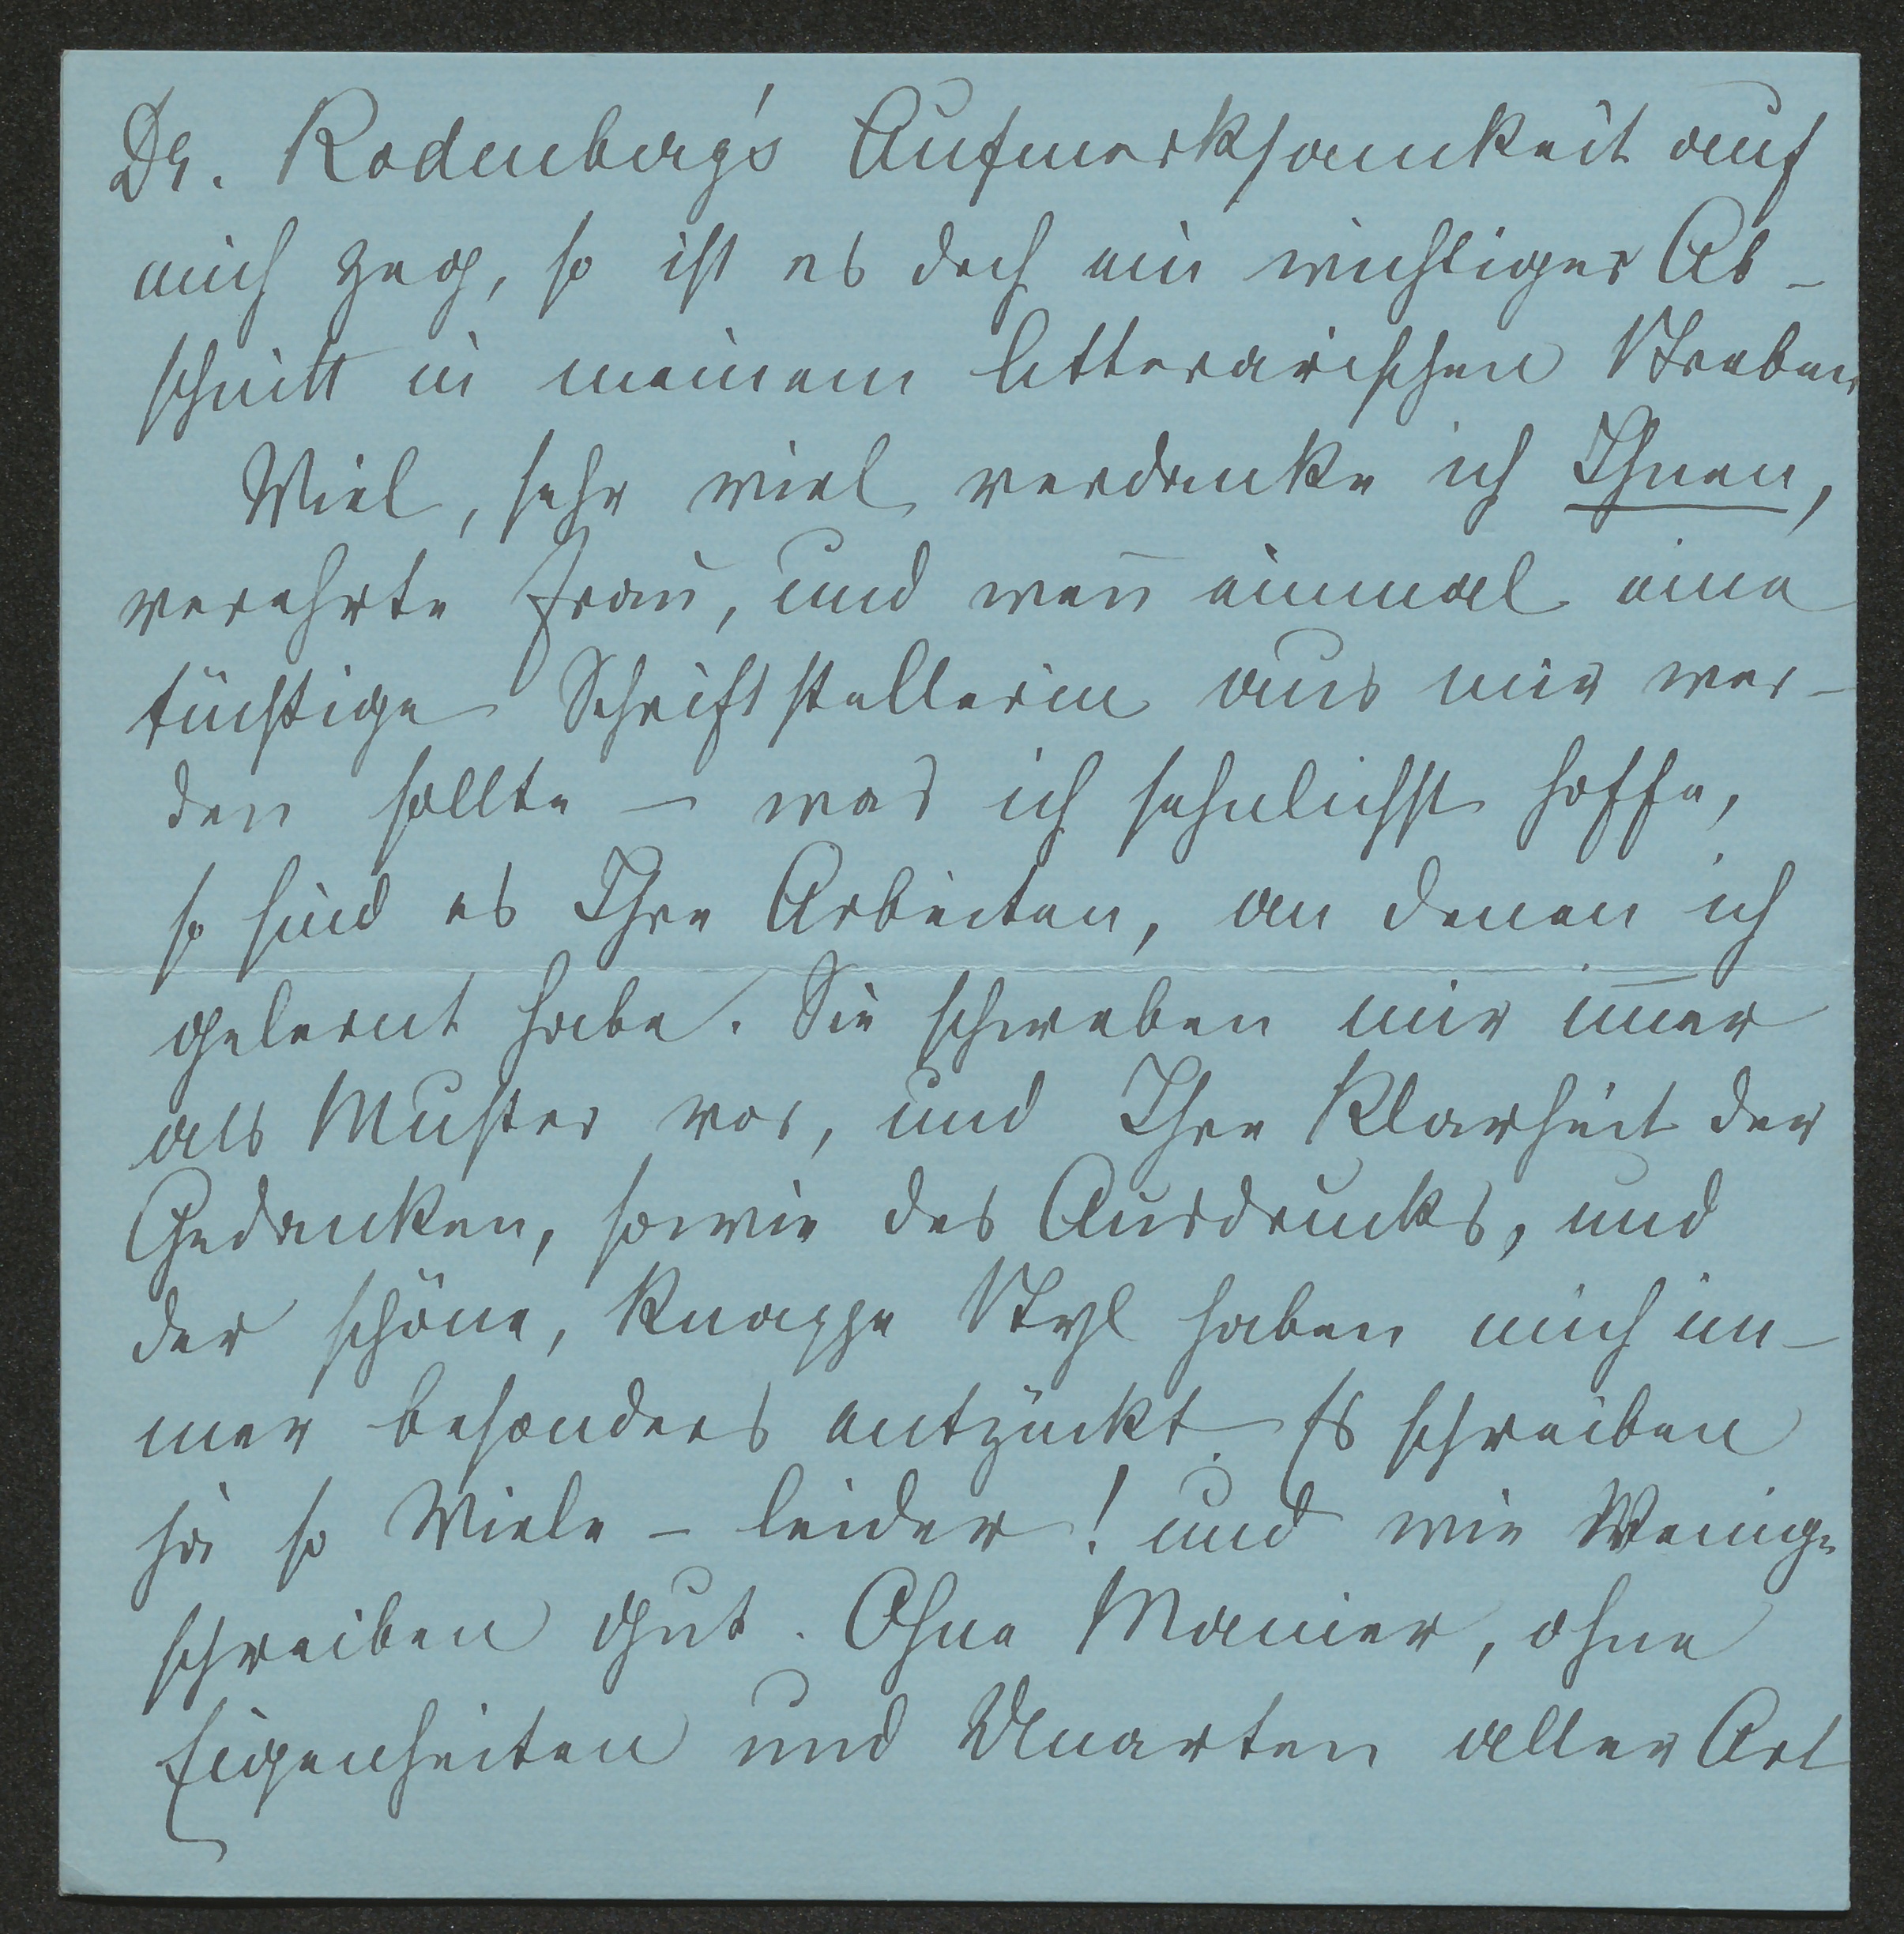 Dr. Rodenberg's Aufmerksamkeit auf
mich zog, so ist es doch ein wichtiger Ab-
schnitt in meinem litterarischen Streben
Viel, sehr viel verdanke ich Ihnen,
verehrte Frau, und wen̄ einmal eine
tüchtige Schriftstellerin aus mir wer-
den sollte – was ich sehnlichst hoffe,
so sind es Ihre Arbeiten, an denen ich
gelernt habe. Sie schweben mir im̄er
als Muster vor, und Ihre Klarheit der
Gedanken, sowie des Ausdrucks, und
der schöne, knappe Styl haben mich im-
mer besonders entzückt. Es schreiben
ja so Viele – leider! und wie Wenige
schreiben gut. Ohne Manier, ohne
Eigenheiten und Unarten aller Art